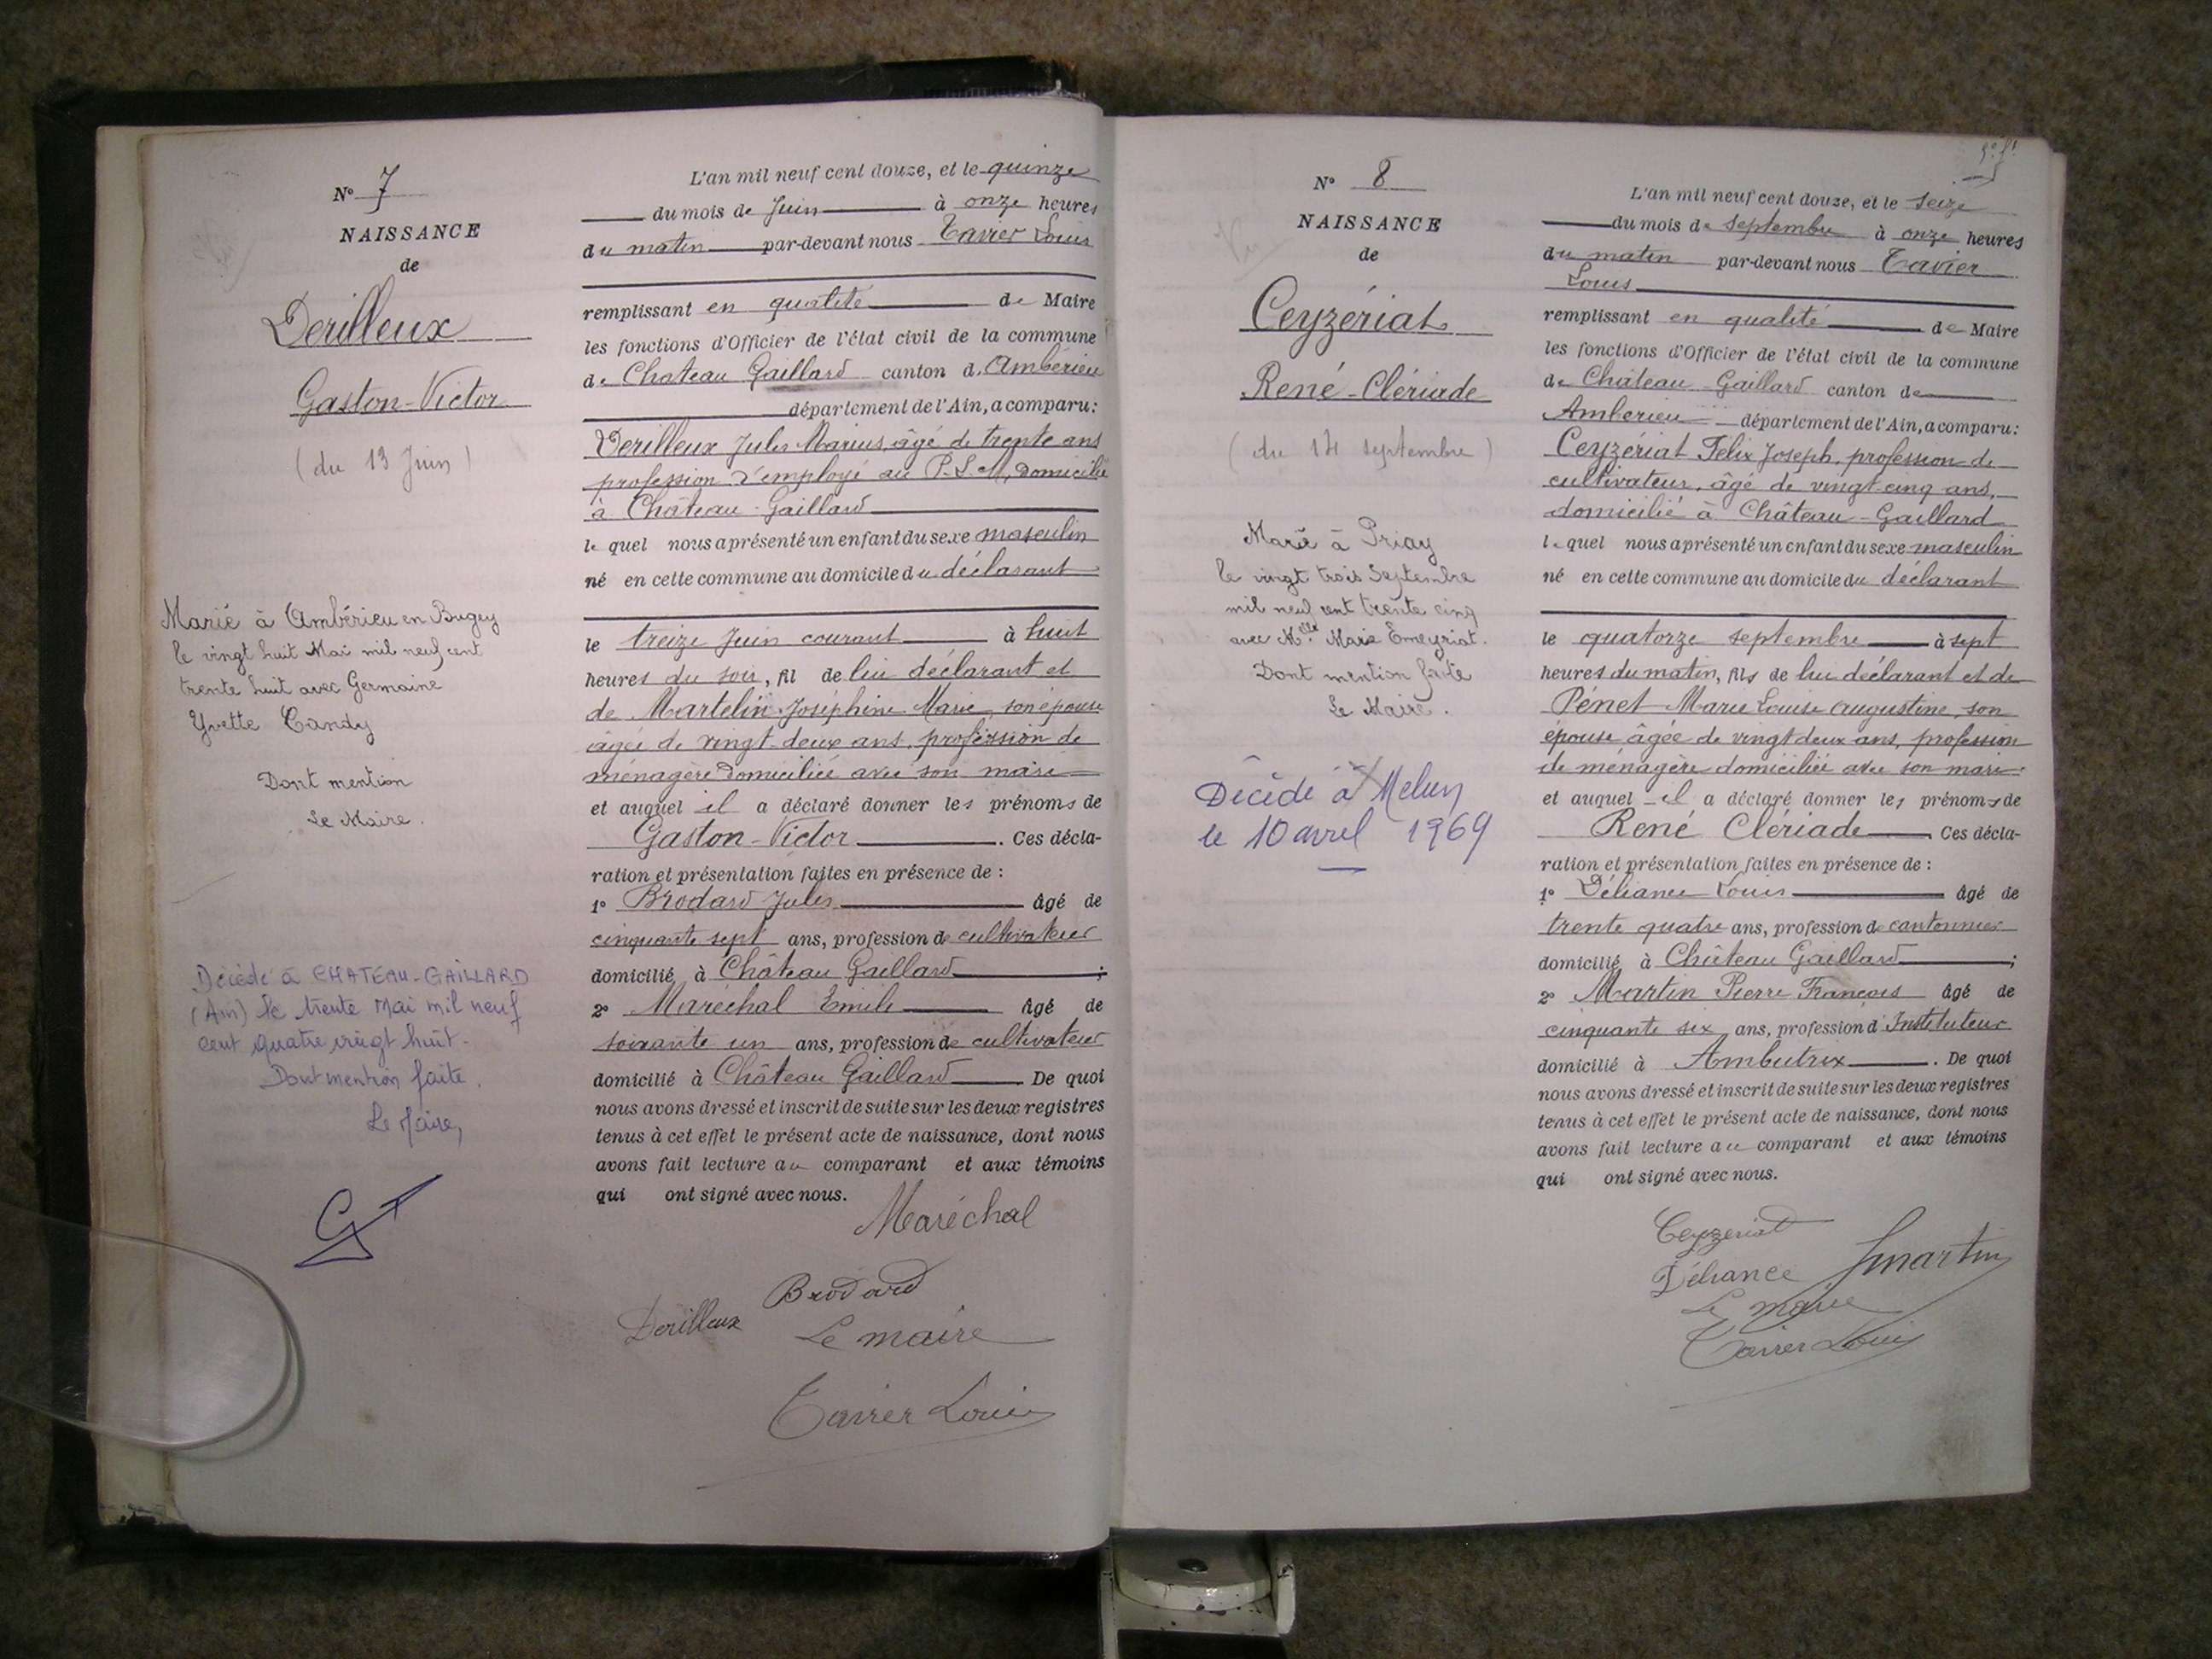 N° 7
NAISSANCE
de
Derilleux
Gaston-Victor
(du 13 Juin)
Marié à Ambérieu en Bugey
le vingt huit Mai mil neuf cent
trente huit avec Germaine
Yvette Tandy
Dont mention
Le Maire.
Décédé à CHATEAU-GAILLARD
(Ain) le trente Mai mil neuf
cent quatre vingt huit.
Dont mention faite.
Le Maire,
L'an mil neuf cent douze, et le quinze
du mois de Juin à onze heures
du matin par-devant nous Tavier Louis
remplissant en qualité de Maire
les fonctions d'Officier de l'état civil de la commune
de Chateau Gaillard canton d'Ambérieu
département de l'Ain, a comparu:
Derilleux Jules Marius, âgé de trente ans
profession d'employé au P.L.M, domicilié
à Château-Gaillard
lequel nous a présenté un enfant du sexe masculin
né en cette commune au domicile du déclarant
le treize Juin courant à huit
heures du soir, fil de lui déclarant et
de Martelin Joséphine Marie, son épouse
âgée de vingt deux ans, profession de
ménagère domiciliée avec son mari
et auquel il a déclaré donner les prénoms de
Gaston-Victor. Ces décla-
ration et présentation faites en présence de :
1° Brodard Jules âgé de
cinquante sept ans, profession de cultivateur
domicilié à Château Gaillard ;
2° Maréchal Emile âgé de
soixante un ans, profession de cultivateur
domicilié à Château Gaillard De quoi
nous avons dressé et inscrit de suite sur les deux registres
tenus à cet effet le présent acte de naissance, dont nous
avons fait lecture au comparant et aux témoins
qui ont signé avec nous.
Maréchal
Brodard
Derilleux Le maire
Tavier Louis
N° 8
NAISSANCE
de
Ceyzériat
René-Clériade
(du 14 septembre)
Marié à Priay
le vingt trois Septembre
mil neuf cent trente cinq
avec Melle Marie Emeyriat.
Dont mention faite
Le Maire.
Décédé à Melun
le 10 avril 1969
L'an mil neuf cent douze, et le seize
du mois de septembre à onze heures
du matin par-devant nous Tavier
Louis
remplissant en qualité de Maire
les fonctions d'Officier de l'état civil de la commune
de Château-Gaillard canton de
Amberieu département de l'Ain, a comparu:
Ceyzériat Félix Joseph, profession de
cultivateur, âgé de vingt cinq ans,
domicilié à Château-Gaillard
lequel nous a présenté un enfant du sexe masculin
né en cette commune au domicile du déclarant
le quatorze septembre à sept
heures du matin, fils de lui déclarant et de
Pénet Marie Louise Augustine, son
épouse âgée de vingt deux ans, profession
de ménagère domiciliée avec son mari
et auquel il a déclaré donner les prénoms de
René Clériade Ces décla-
ration et présentation faites en présence de :
1° Déliance Louis âgé de
trente quatre ans, profession de cantonnier
domicilié à Château Gaillard ;
2° Martin Pierre François âgé de
cinquante six ans, profession d'Instituteur
domicilié à Ambutrix. De quoi
nous avons dressé et inscrit de suite sur les deux registres
tenus à cet effet le présent acte de naissance, dont nous
avons fait lecture au comparant et aux témoins
qui ont signé avec nous.
Ceyzeriat
Déliance Martin
Le maire
Tavier Louis